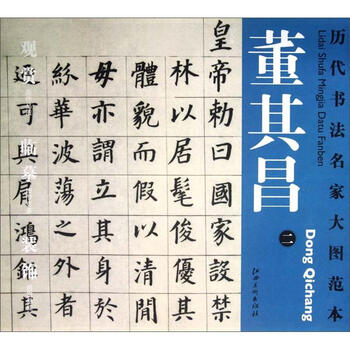 历代书法名家大图范本
Lidai Shufa Mingjia Datu Fanben
董其昌
二
Dong Qichang
江西美术出版社
皇帝勅曰國家設禁
林以居髦俊其
體貌而假以清閒
毋亦謂立其身於
紛華波蕩之外者
可與肩鴻鉅其
观赏
临摹
装饰